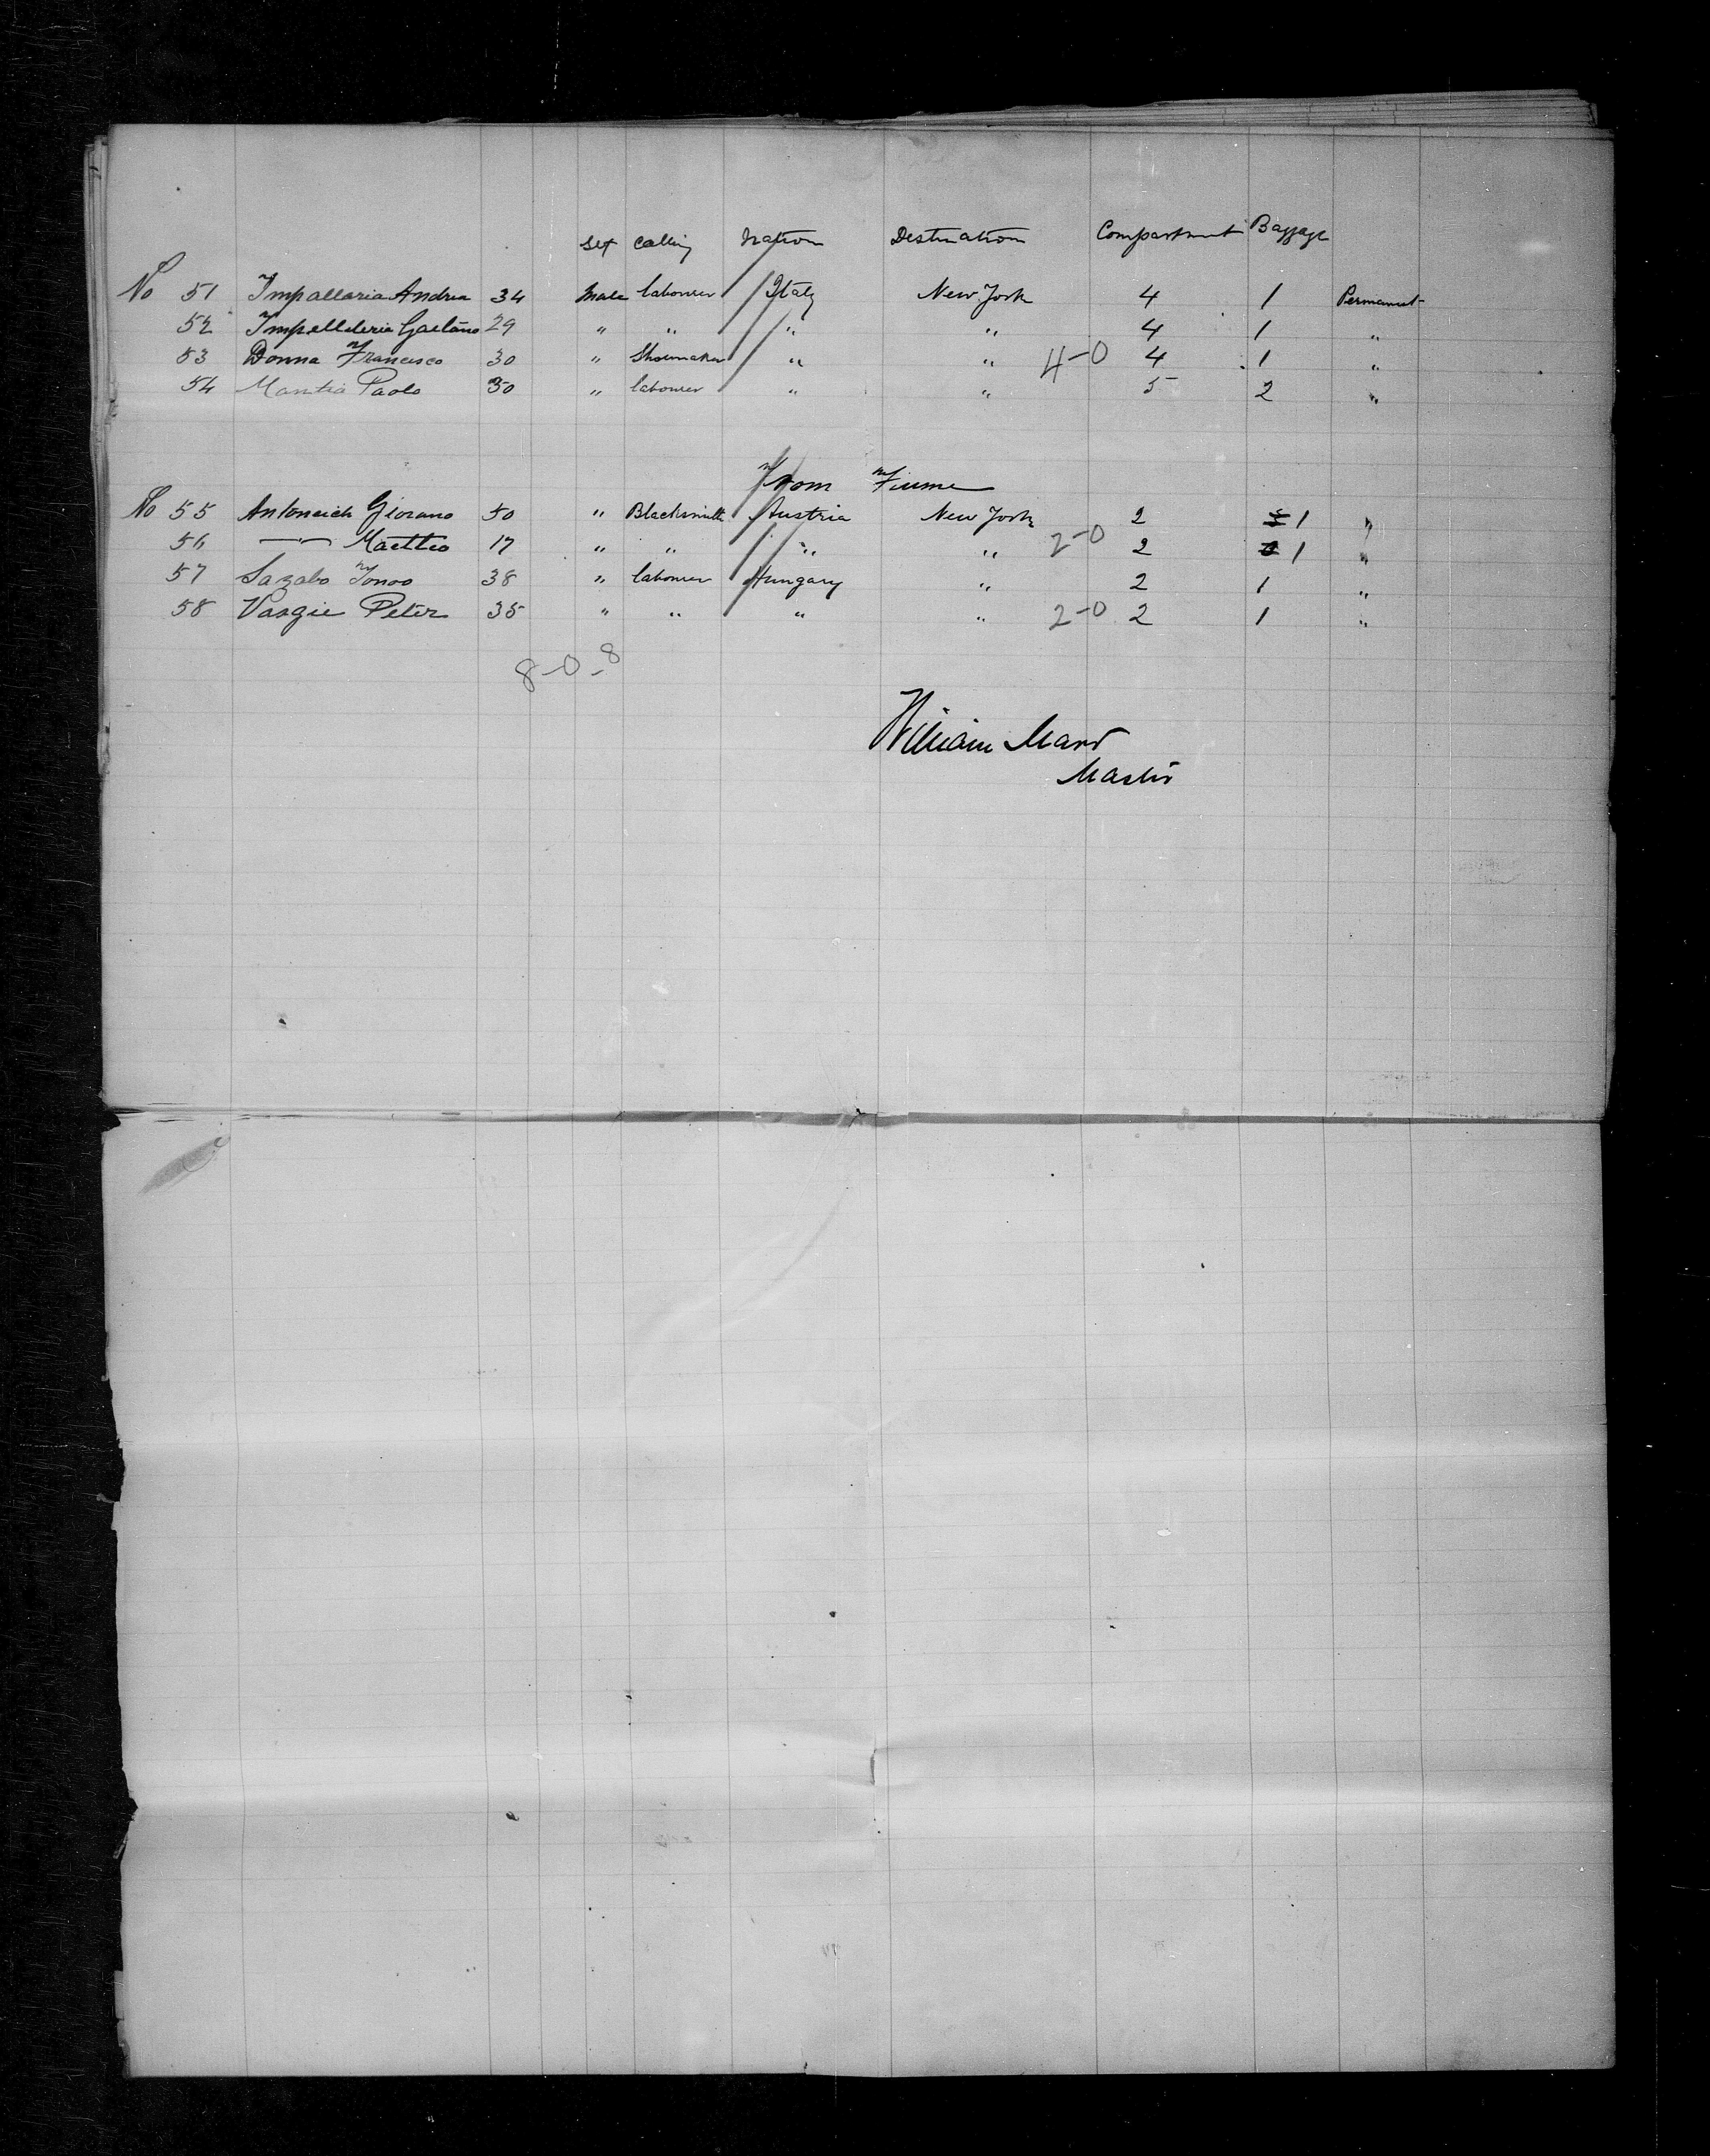 Sex Calling Nation Destination Compartment Baggage
No 51 Impallaria Andrea 34 Male labourer Italy New York 4 1 Permanent
52 Impelleleria Gaetano 29 " " " " 4 1 "
53 Donna Francesco 30 " Shoemaker " " 4-0 4 1 "
54 Mantia Paolo 30 " labourer " " 5 2 "
From Fiume
No 55 Antoncich Giovano 50 " Blacksmith Austria New York 2 1 "
56 —"— Matteo 17 " " " " 2-0 2 1 "
57 Sazabo 38 " labourer Hungary " 2 1 "
58 Vasgie Peter 35 " " " " 2-0 2 1 "
8-0-8
William
Master